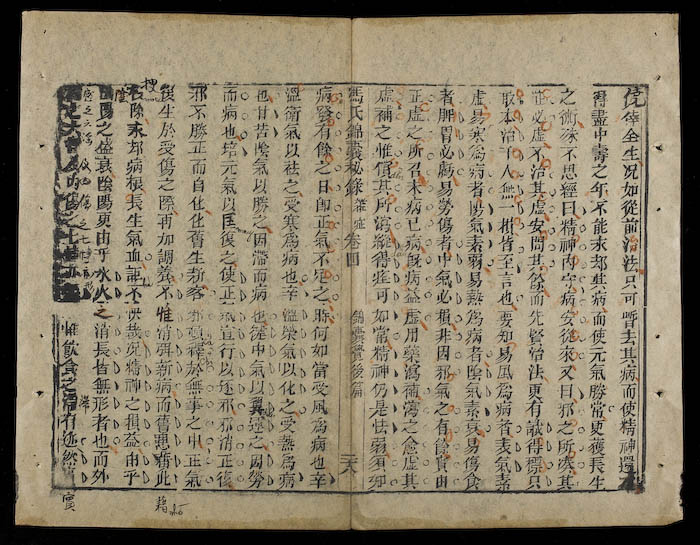 僥倖全生况如從前治法只可暫去其病而使精神還
得盡中壽之年不能永却其病而使元氣勝常更獲長生
之術殊不思經曰精神內守病安從來又曰邪之所湊其
正必虛不治其虛安問其餘而先賢治法更有誠得標只
取本治千人無一損皆至言也要知易風為病者表氣素
虛易寒為病者陽氣素弱易熱為病者陰氣素衰易傷食
者脾胃必虧易勞傷者中氣必損非因邪氣之有餘實由
正虛之所召未病已病既病益虛用藥瀉補瀉之愈虛其
虛補之惟償其所瀉縱得痊可如常精神仍是怯弱須知
馮氏錦囊秘錄 雜症 卷四 錦囊覽後篇 二八
病發有餘之日卽正氣不足之時何如當受風為病也辛
溫衛氣以祛之受寒為病也辛溫榮氣以化之受熱為病
也甘苦陰氣以勝之因滯而病也從中氣以翼運之因勞
而病也培元氣以匡復之使正氣宣行以逐邪邪消正復
邪不勝正而自化化舊生新客邪釋於無事之中正氣
復生於受傷之際再加調養不惟消濟新病而舊患藉此
除永却病根長生氣血詎不快哉况精神之損益由乎
陰陽之盛衰陰陽更由乎水火之消長皆無形者也而外
惟飲食之滯有迹